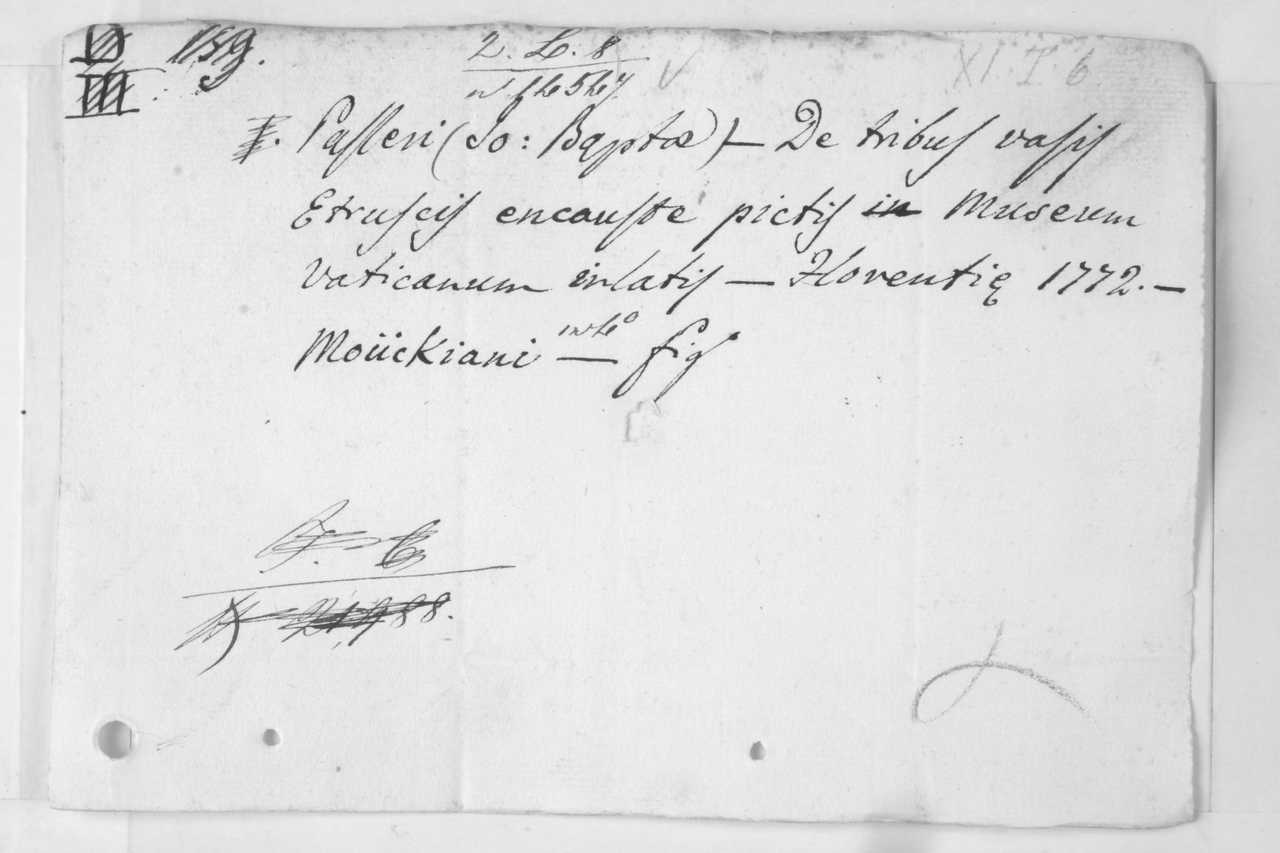 159.
2. L. 8
XI. I. 6
Passeri (Jo: Baptæ) — De tribus vasis
Etruscis encauste pictis in Museum
Vaticanum inlatis — Florentię 1772. —
Moückiani in 4º — fig